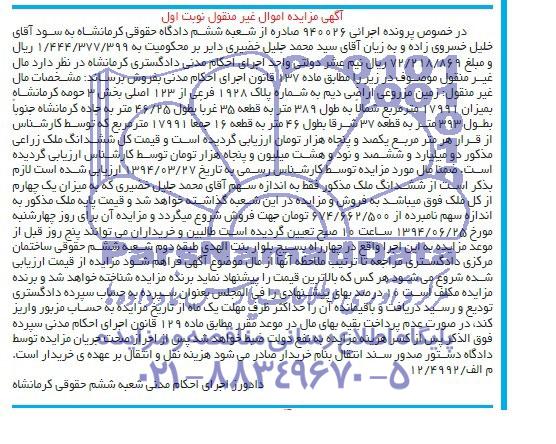 آگهی مزایده اموال غیر منقول نوبت اول
در خصوص پرونده اجرائی ۹۴۰۰۲۶ صادره از شعبه ششم دادگاه حقوقی کرمانشاه به سود آقای
خلیل خسروی زاده و به زیان آقای سید محمد جلیل خضیری دایر بر محکومیت به ۱/۴۴۴/۳۷۷/۳۹۹ ریال
و مبلغ ۷۲/۲۱۸/۸۶۹ ریال نیم عشر دولتی واحد اجرای احکام مدنی دادگستری کرمانشاه در نظر دارد مال
غیر منقول موصوف در زیر را مطابق ماده ۱۳۷ قانون اجرای احکام مدنی بفروش برساند: مشخصات مال
غیر منقول: زمین مزروعی اراضی دیم به شماره پلاک ۱۹۲۸ فرعی از ۱۲۳ اصلی بخش ۳ حومه کرمانشاه
بمیزان ۱۷۹۹۱ مترمربع شمالا به طول ۳۸۹ متر به قطعه ۳۵ غربا بطول ۴۶/۲۵ متر به جاده کرمانشاه جنوباً
بطول ۳۹۳ متر به قطعه ۳۷ شرقا بطول ۴۶ متر به قطعه ۱۶ جمعا ۱۷۹۹۱ مترمربع که توسط کارشناس
از قرار هر متر مربع یکصد و پنجاه هزار تومان ارزیابی گردیده است و قیمت کل ششدانگ ملک زراعی
مذکور دو میلیارد و ششصد و نود و هشت میلیون و پنجاه هزار تومان توسط کارشناس ارزیابی گردیده
است. ضمنا مال مورد مزایده توسط کارشناس رسمی به تاریخ ۱۳۹۴/۰۳/۲۷ ارزیابی شده است لازم
بذکر است از ششدانگ ملک مذکور فقط به اندازه سهم آقای محمد جلیل خضیری که به میزان یک چهارم
از کل ملک فوق میباشد به فروش و مزایده در این شعبه گذاشته خواهد شد و قیمت پایه ملک مذکور به
اندازه سهم نامبرده از ۶۷۴/۶۶۲/۵۰۰ تومان جهت فروش شروع میگردد و مزایده آن برای روز چهارشنبه
مورخ ۱۳۹۴/۰۶/۲۵ ساعت ۱۰ صبح تعیین گردیده است طالبین و خریداران می توانند پنج روز قبل از
موعد مزایده به این اجرا واقع در چهار راه بسیج بلوار بنت الهدی طبقه دوم شعبه ششم حقوقی ساختمان
مرکزی دادگستری مراجعه تا ترتیب ملاحظه آنها از مال موضوع آگهی فراهم شود مزایده از قیمت ارزیابی
شده شروع می شود هر کس که بالاترین قیمت را پیشنهاد نماید برنده مزایده شناخته خواهد شد و برنده
مزایده مکلف است ۱۰ درصد بهای پیشنهادی را فی المجلس بعنوان سپرده به حساب سپرده دادگستری
تودیع و رسید دریافت و باقیمانده آن را حداکثر ظرف مهلت یک ماه از تاریخ مزایده به حساب مزبور واریز
کند، در صورت عدم پرداخت بقیه بهای مال در موعد مقرر مطابق ماده ۱۲۹ قانون اجرای احکام مدنی سپرده
فوق الذکر پس از کسر هزینه مزایده به نفع دولت ضبط خواهد شد پس از احراز صحت جریان مزایده توسط
دادگاه دستور صدور سند انتقال بنام خریدار صادر می شود هزینه نقل و انتقال بر عهده ی خریدار است.
م الف/۱۲/۴۹۹۲
دادورز اجرای احکام مدنی شعبه ششم حقوقی کرمانشاه
۰۲۱-۸۸۳۴۹۶۷۰-۵